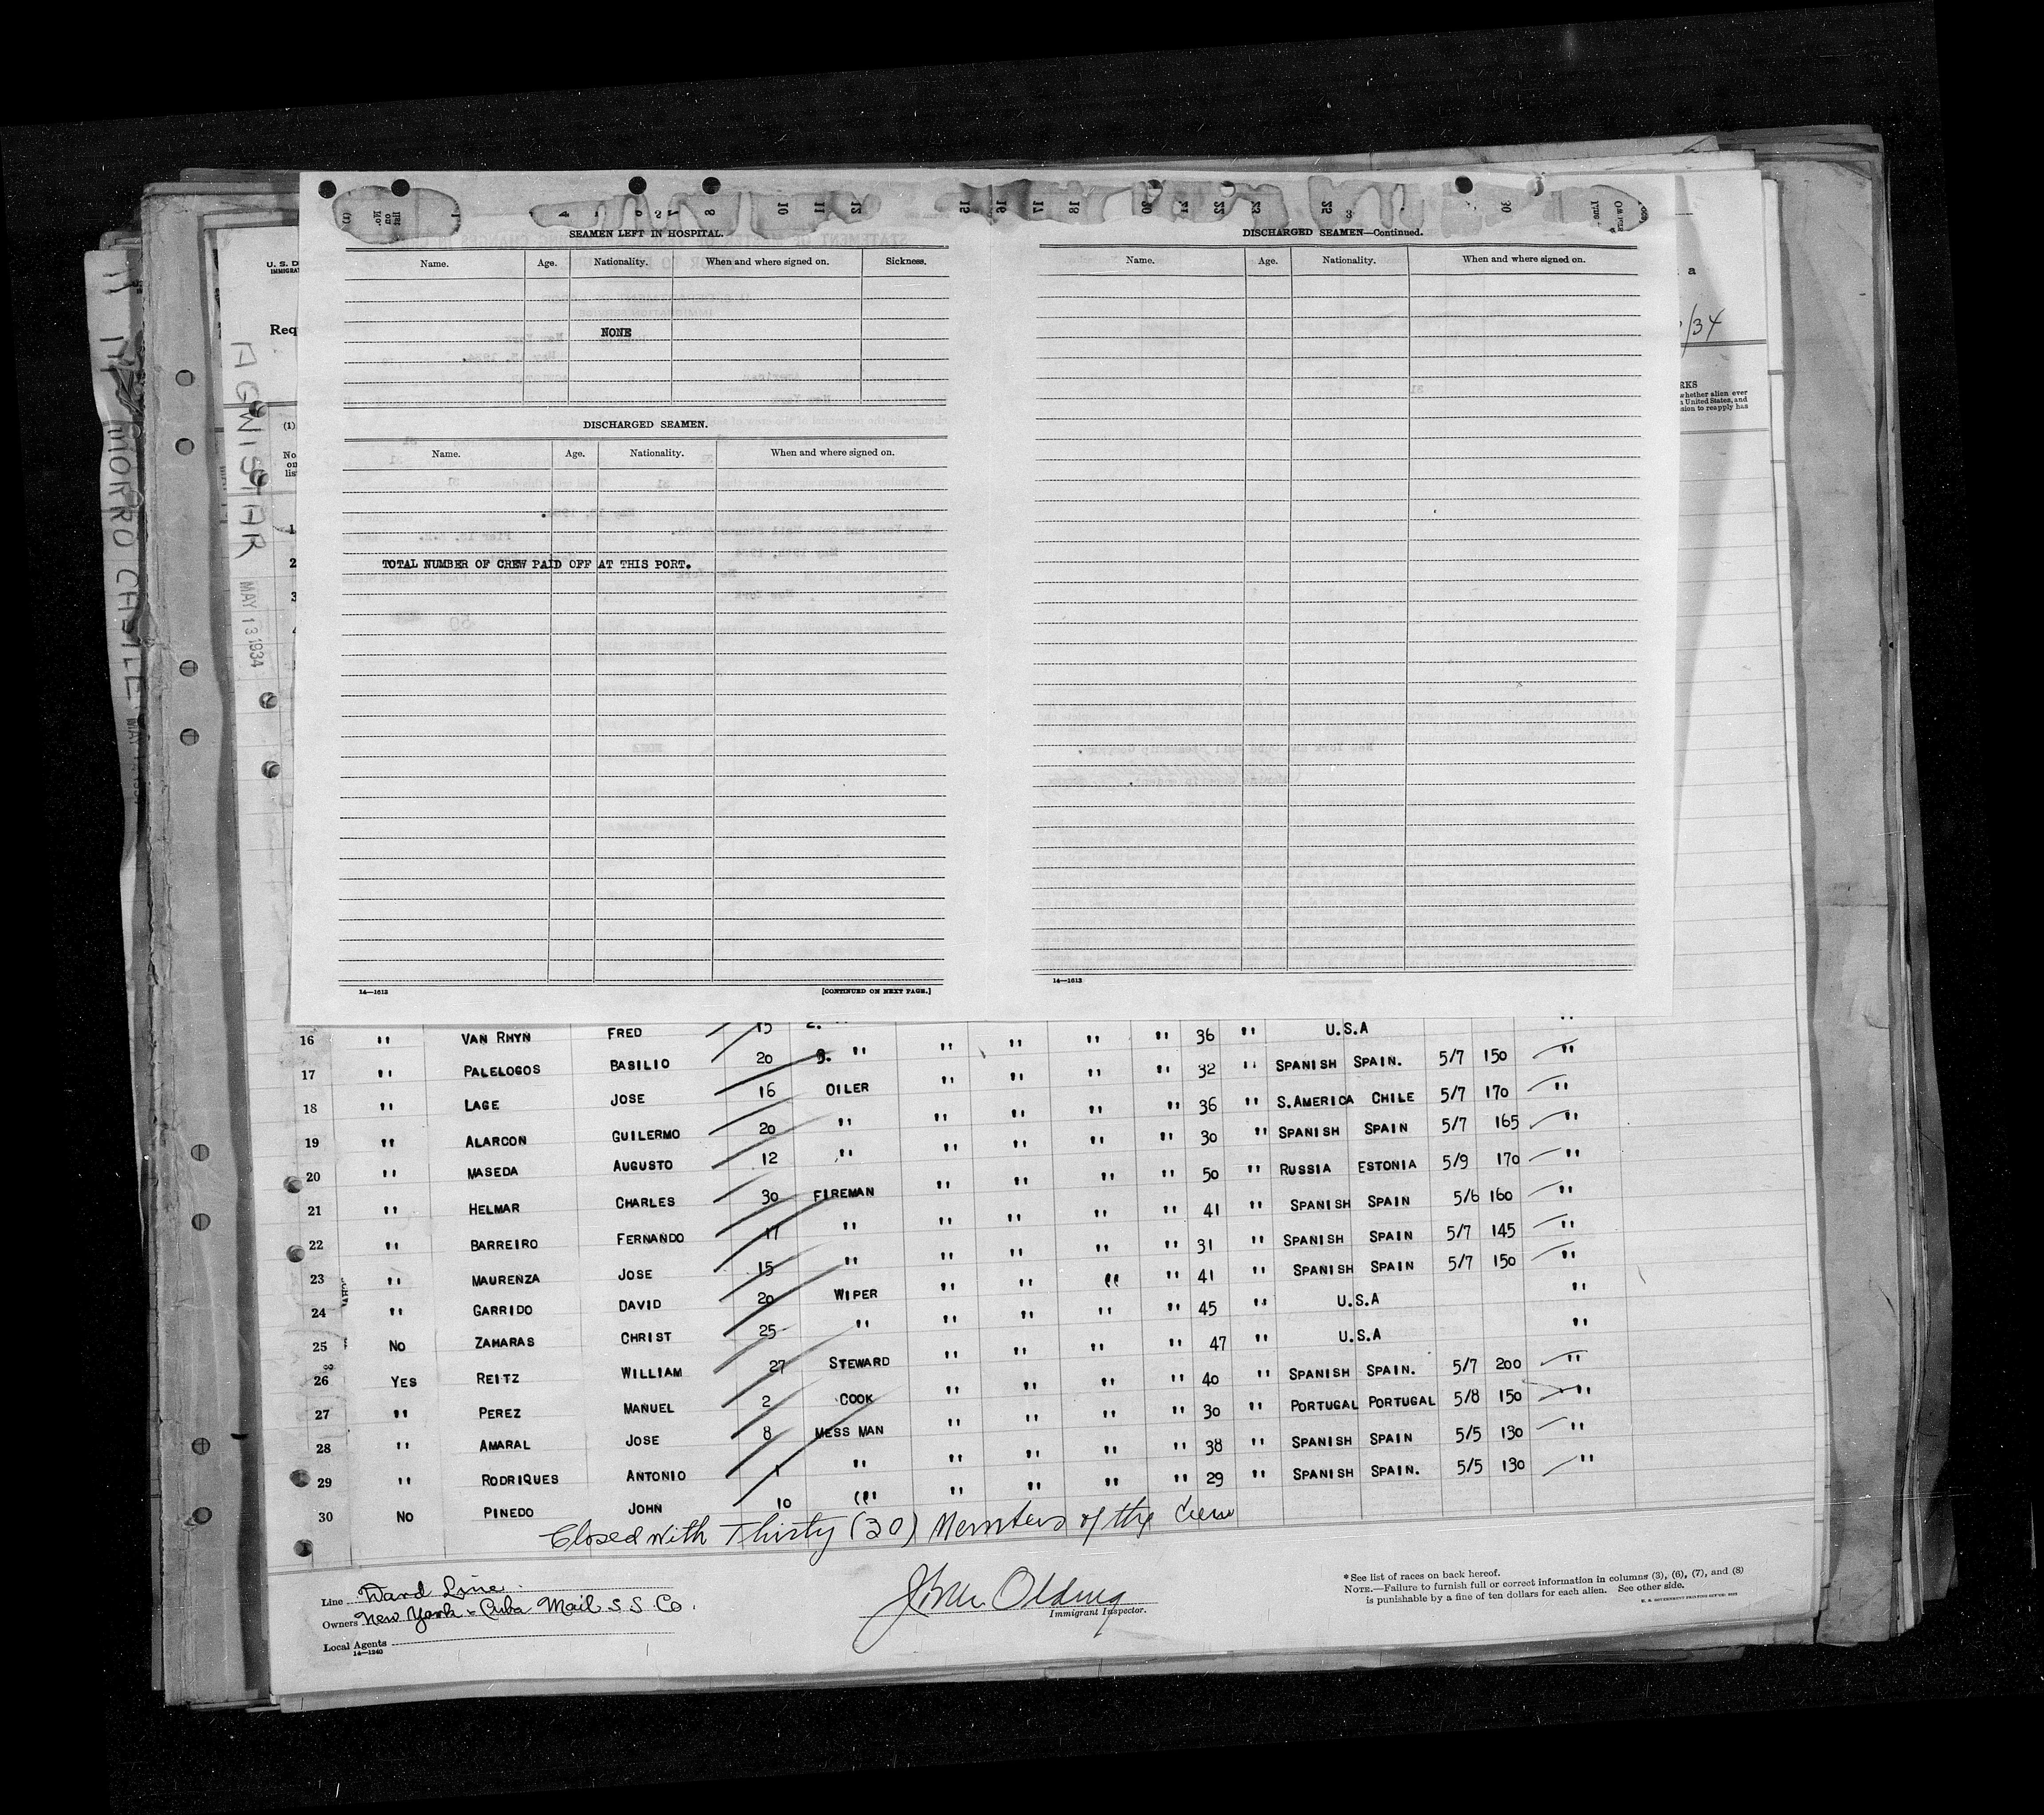 MORRO CASTLE
AGWISTAR MAY 13 1934
U. S. D
IMMIGRAT
Req
(1)
No
on
lis
1
2
3
a
/34
RKS
whether alien ever
United States, and
sion to reapply has
SEAMEN LEFT IN HOSPITAL.
Name. Age. Nationality. When and where signed on. Sickness.
NONE
DISCHARGED SEAMEN.
Name. Age. Nationality. When and where signed on.
TOTAL NUMBER OF CREW PAID OFF AT THIS PORT.
14—1613 [CONTINUED ON NEXT PAGE.]
DISCHARGED SEAMEN—Continued.
Name. Age. Nationality. When and where signed on.
14—1613
16 " VAN RHYN FRED 15 2. "
17 " PALELOGOS BASILIO 20 3. " " " " " 36 " U.S.A "
18 " LAGE JOSE 16 OILER " " " " 32 " SPANISH SPAIN. 5/7 150 "
19 " ALARCON GUILERMO 20 " " " " " 36 " S.AMERICA CHILE 5/7 170 "
20 " MASEDA AUGUSTO 12 " " " " " 30 " SPANISH SPAIN 5/7 165 "
21 " HELMAR CHARLES 30 FIREMAN " " " " 50 " RUSSIA ESTONIA 5/9 170 "
22 " BARREIRO FERNANDO 17 " " " " " 41 " SPANISH SPAIN 5/6 160 "
23 " MAURENZA JOSE 15 " " " " " 31 " SPANISH SPAIN 5/7 145 "
24 " GARRIDO DAVID 20 WIPER " " " " 41 " SPANISH SPAIN 5/7 150 "
25 NO ZAHARAS CHRIST 25 " " " " " 45 " U.S.A "
26 YES REITZ WILLIAM 27 STEWARD " " " " 47 " U.S.A "
27 " PEREZ MANUEL 2 COOK " " " " 40 " SPANISH SPAIN. 5/7 200 "
28 " AMARAL JOSE 8 MESS MAN " " " " 30 " PORTUGAL PORTUGAL 5/8 150 "
29 " RODRIQUES ANTONIO 1 " " " " " 38 " SPANISH SPAIN 5/5 130 "
30 NO PINEDO JOHN 10 " " " " " 29 " SPANISH SPAIN. 5/5 130 "
Closed with Thirty (30) Members of the Crew
Line Ward Line
Owners New York - Cuba Mail S S Co.
Local Agents
14—1240
Immigrant Inspector.
* See list of races on back hereof.
NOTE.—Failure to furnish full or correct information in columns (3), (6), (7), and (8)
is punishable by a fine of ten dollars for each alien. See other side.